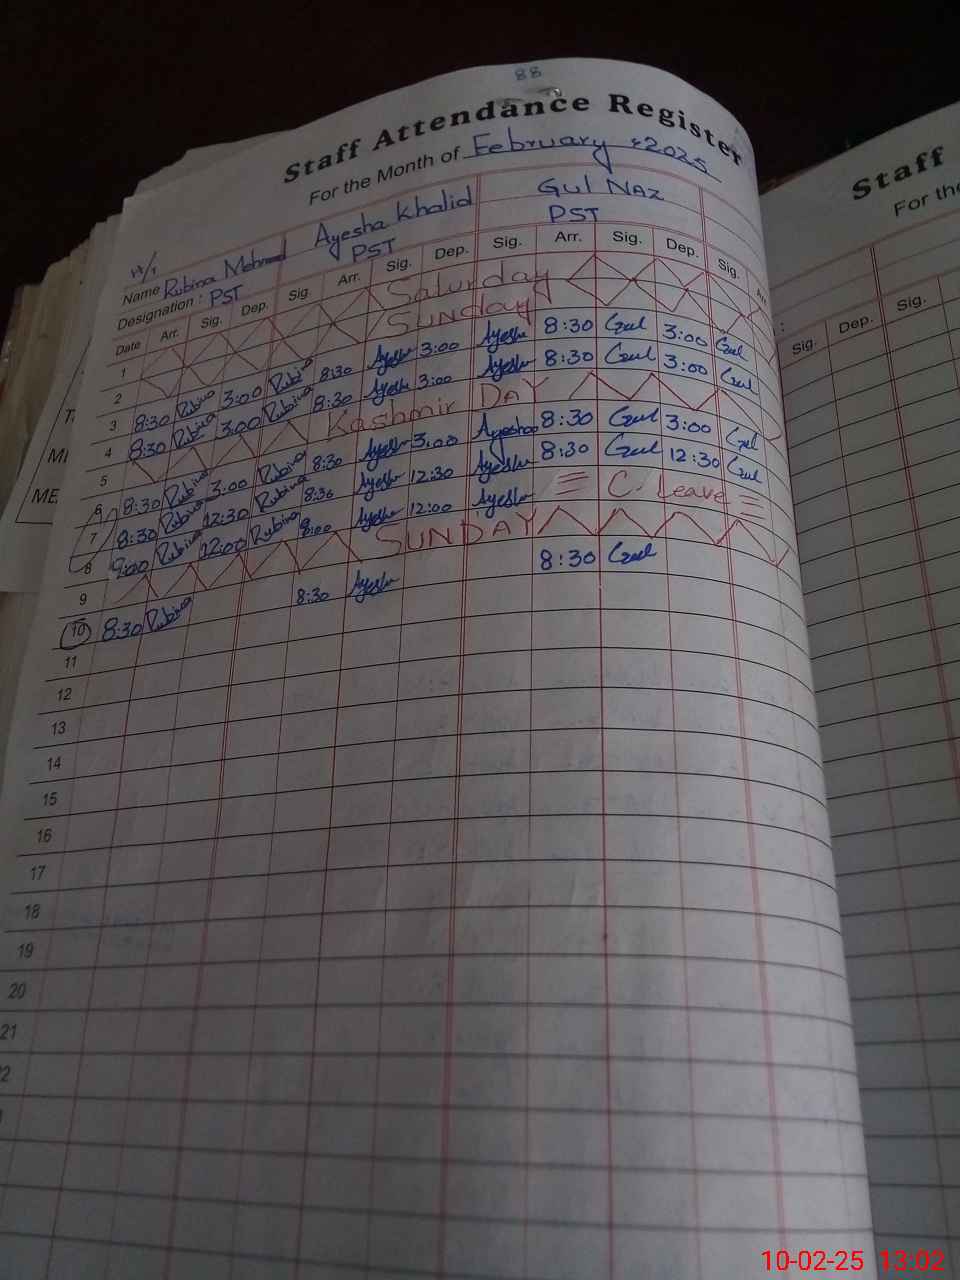 88
Staff Attendance Register
For the Month of February 2025
H/T
Name Rubina Mehmood Ayesha Khalid Gul Naz
Designation : PST PST PST
Date Arr. Sig. Dep. Sig. Arr. Sig. Dep. Sig. Arr. Sig. Dep. Sig.
1 Saturday
2 Sunday
3 8:30 Rubina 3:00 Rubina 8:30 Ayesha 3:00 Ayesha 8:30 Gul 3:00 Gul
4 8:30 Rubina 3:00 Rubina 8:30 Ayesha 3:00 Ayesha 8:30 Gul 3:00 Gul
5 Kashmir DAY
6 8:30 Rubina 3:00 Rubina 8:30 Ayesha 3:00 Ayesha 8:30 Gul 3:00 Gul
7 8:30 Rubina 12:30 Rubina 8:30 Ayesha 12:30 Ayesha 8:30 Gul 12:30 Gul
8 9:00 Rubina 12:00 Rubina 8:00 Ayesha 12:00 Ayesha C. Leave
9 SUNDAY
10 8:30 Rubina 8:30 Ayesha 8:30 Gul
11
12
13
14
15
16
17
18
19
20
21
2
Staff
For the
:
Sig. Dep. Sig.
ME
10-02-25 13:02